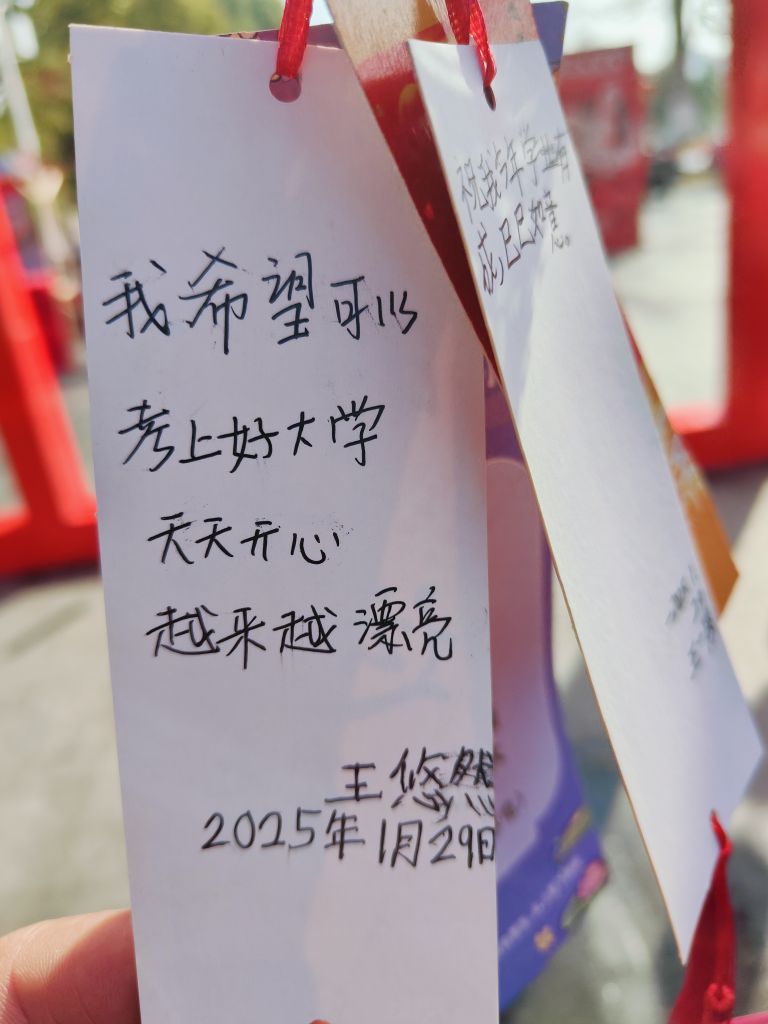 我希望可以
考上好大学
天天开心
越来越漂亮
王悠然
2025年1月29日
祝我今年学业有
成,巳巳如意。